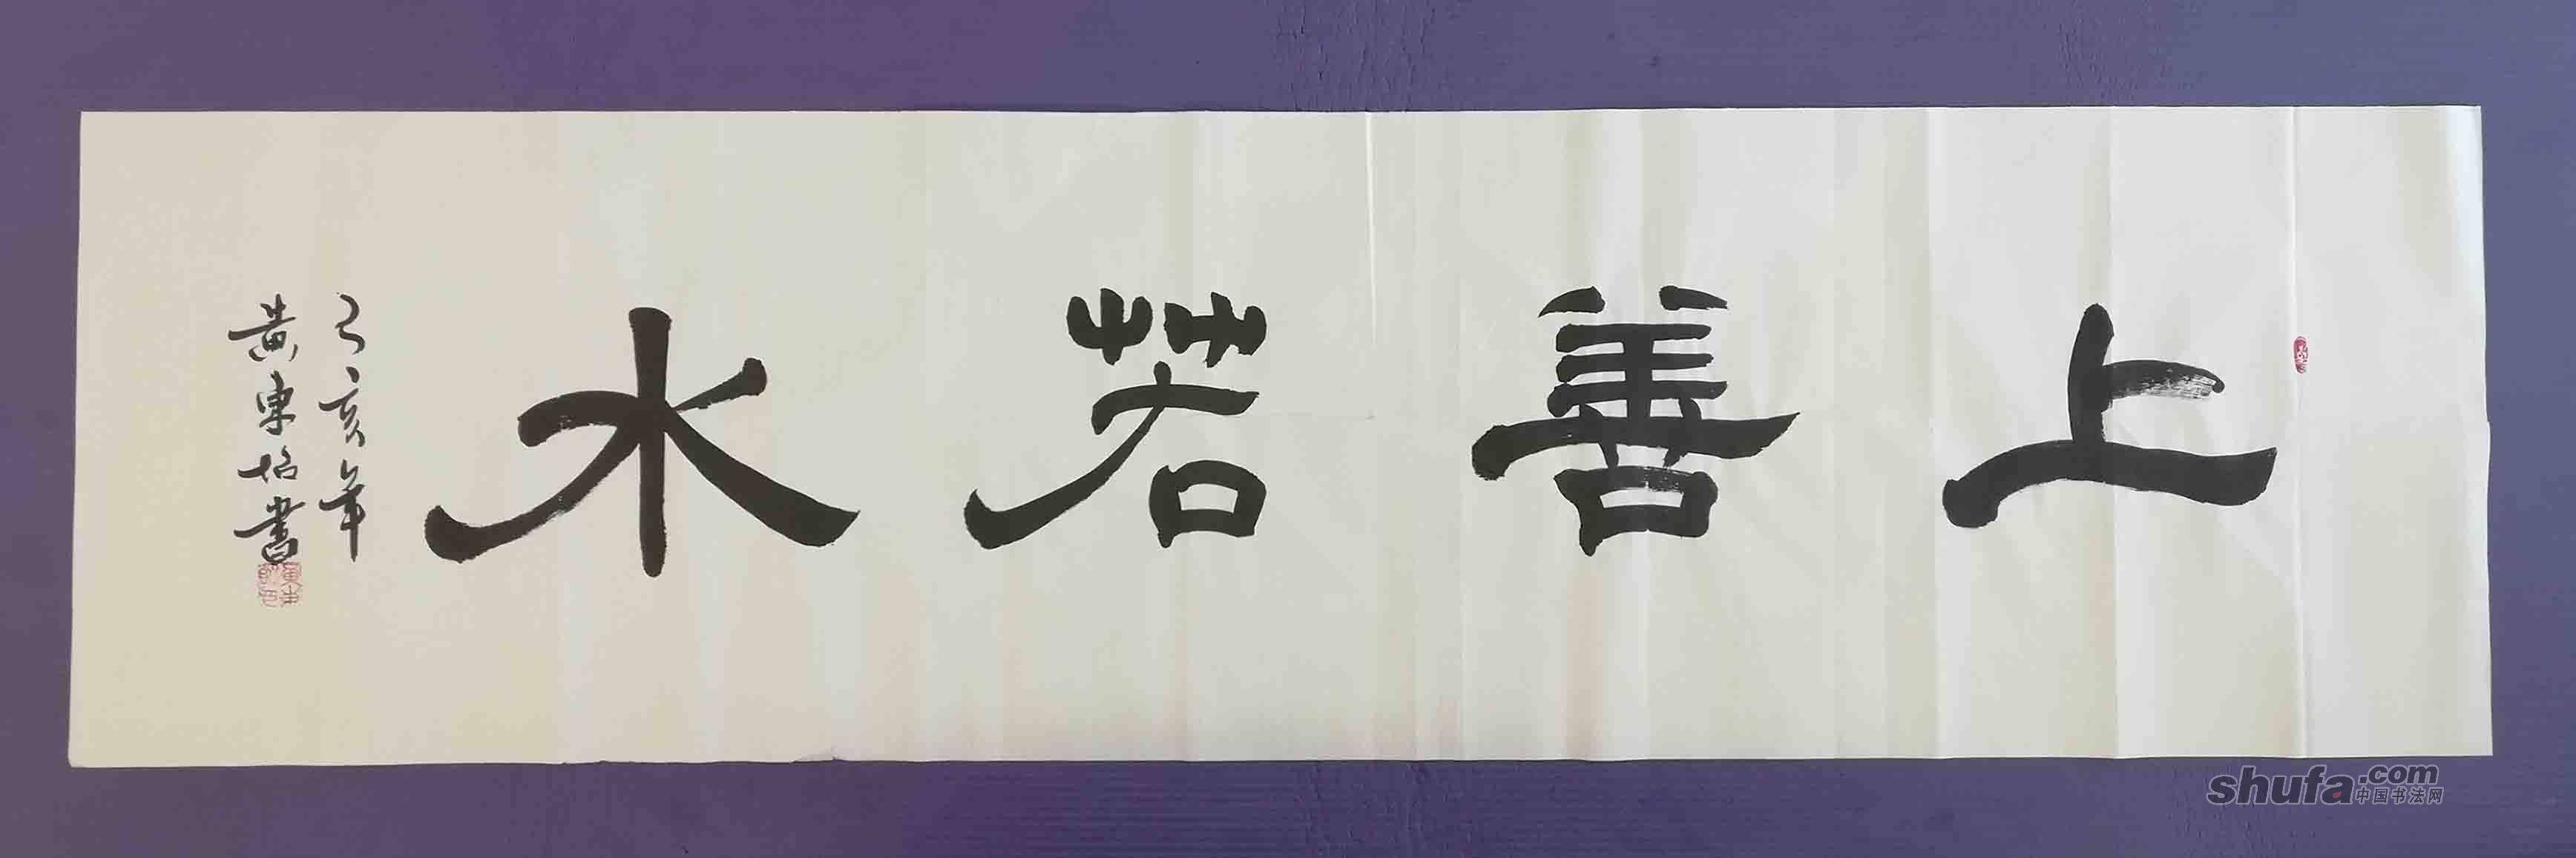 上善若水
己亥年
黄東招書
shufa.com
中国书法网